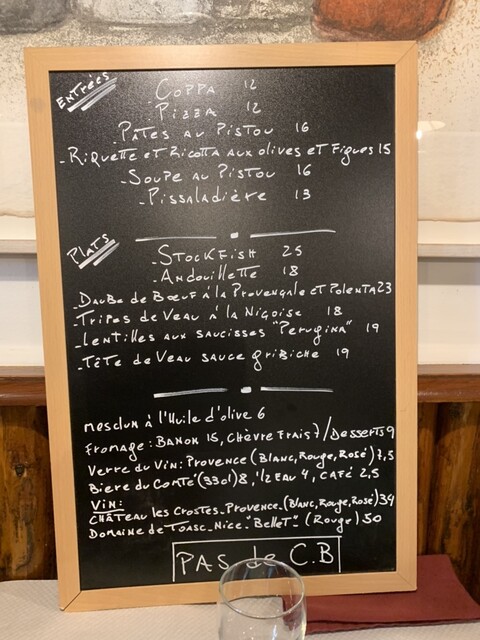 Entrées
Coppa 12
Pizza 12
Pâtes au Pistou 16
-Riquette et Ricotta aux olives et Figues 15
-Soupe au Pistou 16
-Pissaladière 13
Plats
-Stockfish 25
-Andouillette 18
-Daube de Bœuf à la Provençale et Polenta 23
-Tripes de Veau à la Niçoise 18
-Lentilles aux saucisses "Perugina" 19
-Tête de Veau sauce gribiche 19
mesclun à l'Huile d'olive 6
Fromage: Banon 15, Chèvre Frais 7/Desserts 9
Verre du Vin: Provence (Blanc, Rouge, Rosé) 7,5
Biere du Comté (33cl) 8, 1/2 Eau 4, Café 2,5
Vin:
Château les Crostes-Provence-(Blanc, Rouge, Rosé) 34
Domaine de Toasc-Nice-"Bellet" (Rouge) 50
PAS de C.B